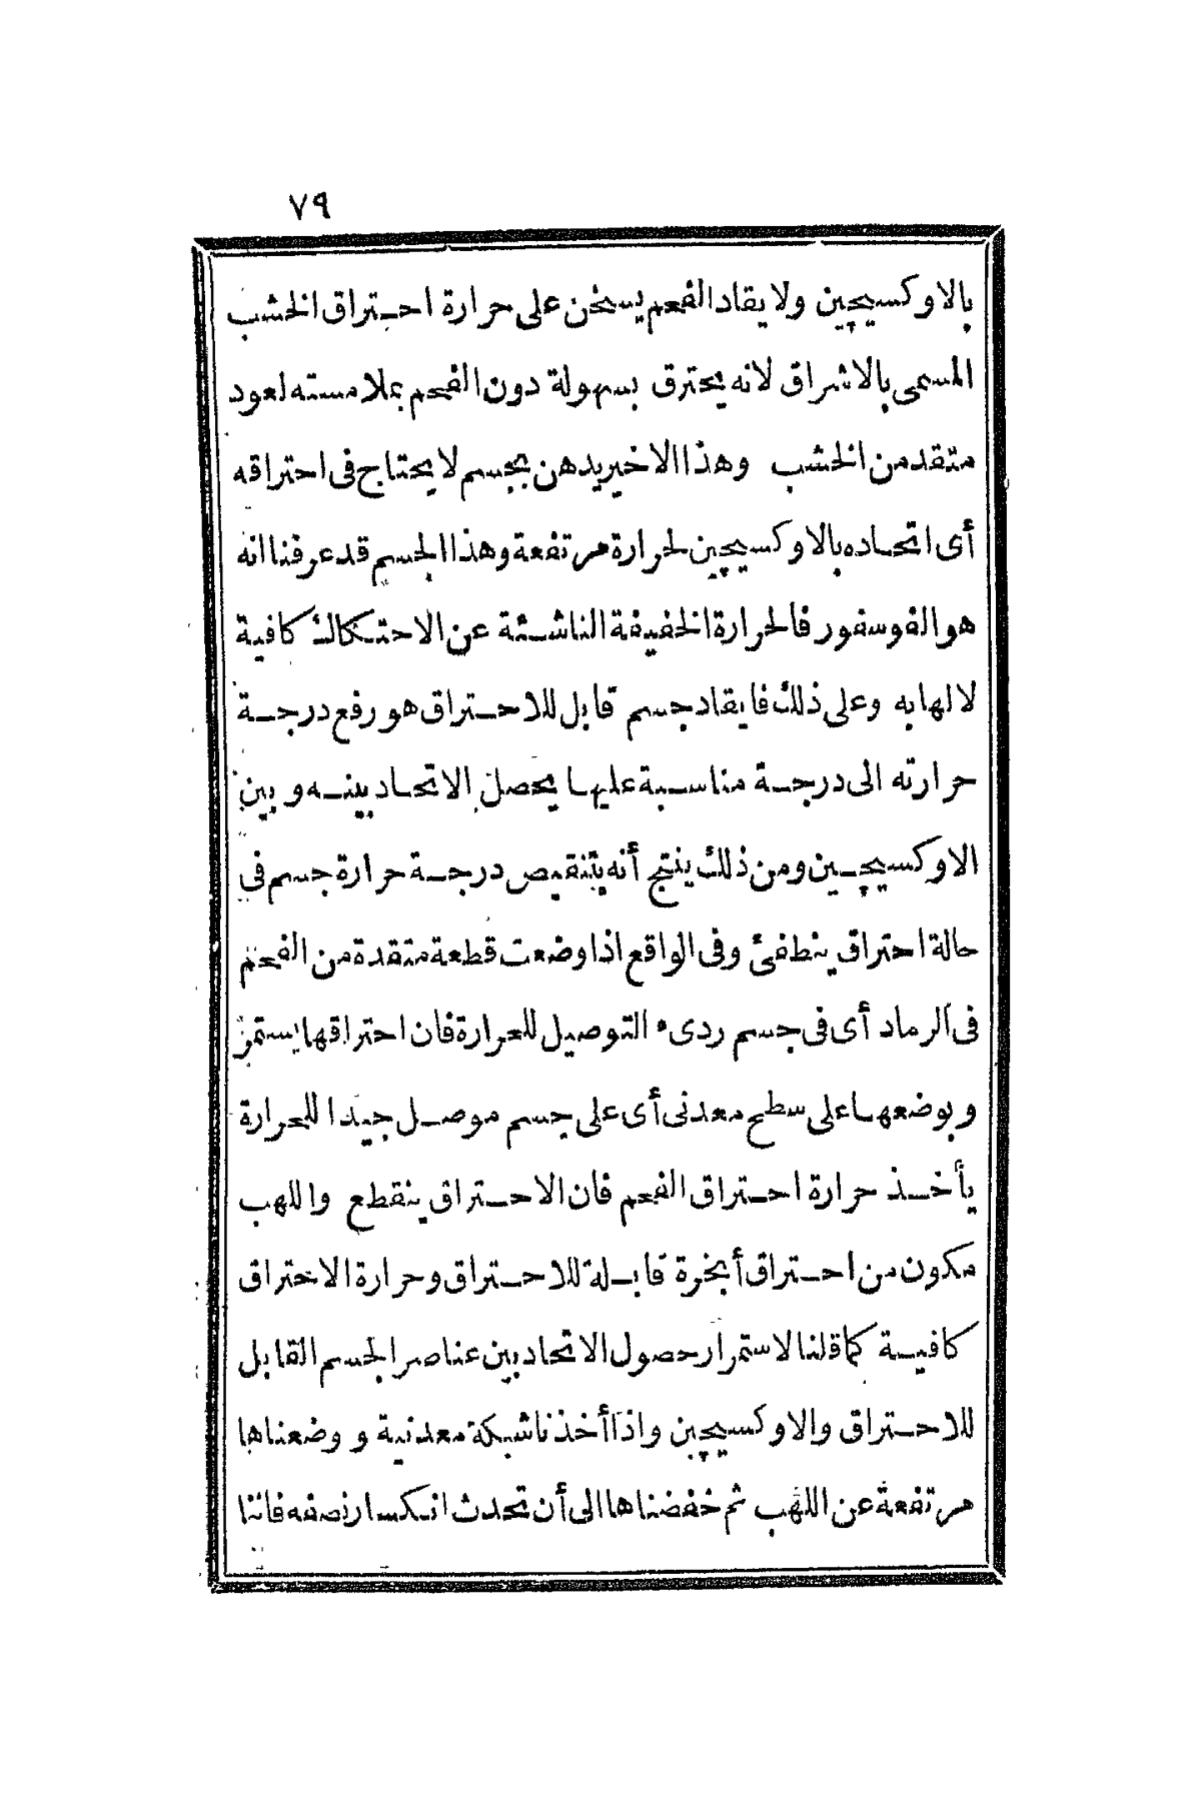 ٧٩
بالاوكسيچين ولايقاد الفحم يسخن على حرارة احتراق الخشب
المسمى بالاشراق لانه يحترق بسهولة دون الفحم بملامسته لعود
متقد من الخشب وهذا الاخير يدهن بجسم لا يحتاج فى احتراقه
أى اتحاده بالاوكسيچين لحرارة مرتفعة وهذا الجسم قد عرفنا انه
هو الفوسفور فالحرارة الخفيفة الناشئة عن الاحتكاك كافية
لالهابه وعلى ذلك فايقاد جسم قابل للاحتراق هو رفع درجة
حرارته الى درجة مناسبة عليها يحصل الاتحاد بينه وبين
الاوكسيچين ومن ذلك ينتج أنه بتنقيص درجة حرارة جسم فى
حالة احتراق ينطفئ وفى الواقع اذا وضعت قطعة متقدة من الفحم
فى الرماد أى فى جسم ردىء التوصيل للحرارة فان احتراقها يستمر
وبوضعها على سطح معدنى أى على جسم موصل جيدا للحرارة
يأخذ حرارة احتراق الفحم فان الاحتراق ينقطع واللهب
مكون من احتراق أبخرة قابلة للاحتراق وحرارة الاحتراق
كافية كما قلنا لاستمرار حصول الاتحاد بين عناصر الجسم القابل
للاحتراق والاوكسيچين واذا أخذنا شبكة معدنية و وضعناها
مرتفعة عن اللهب ثم خفضناها الى أن تحدث انكسار نصفه فاننا